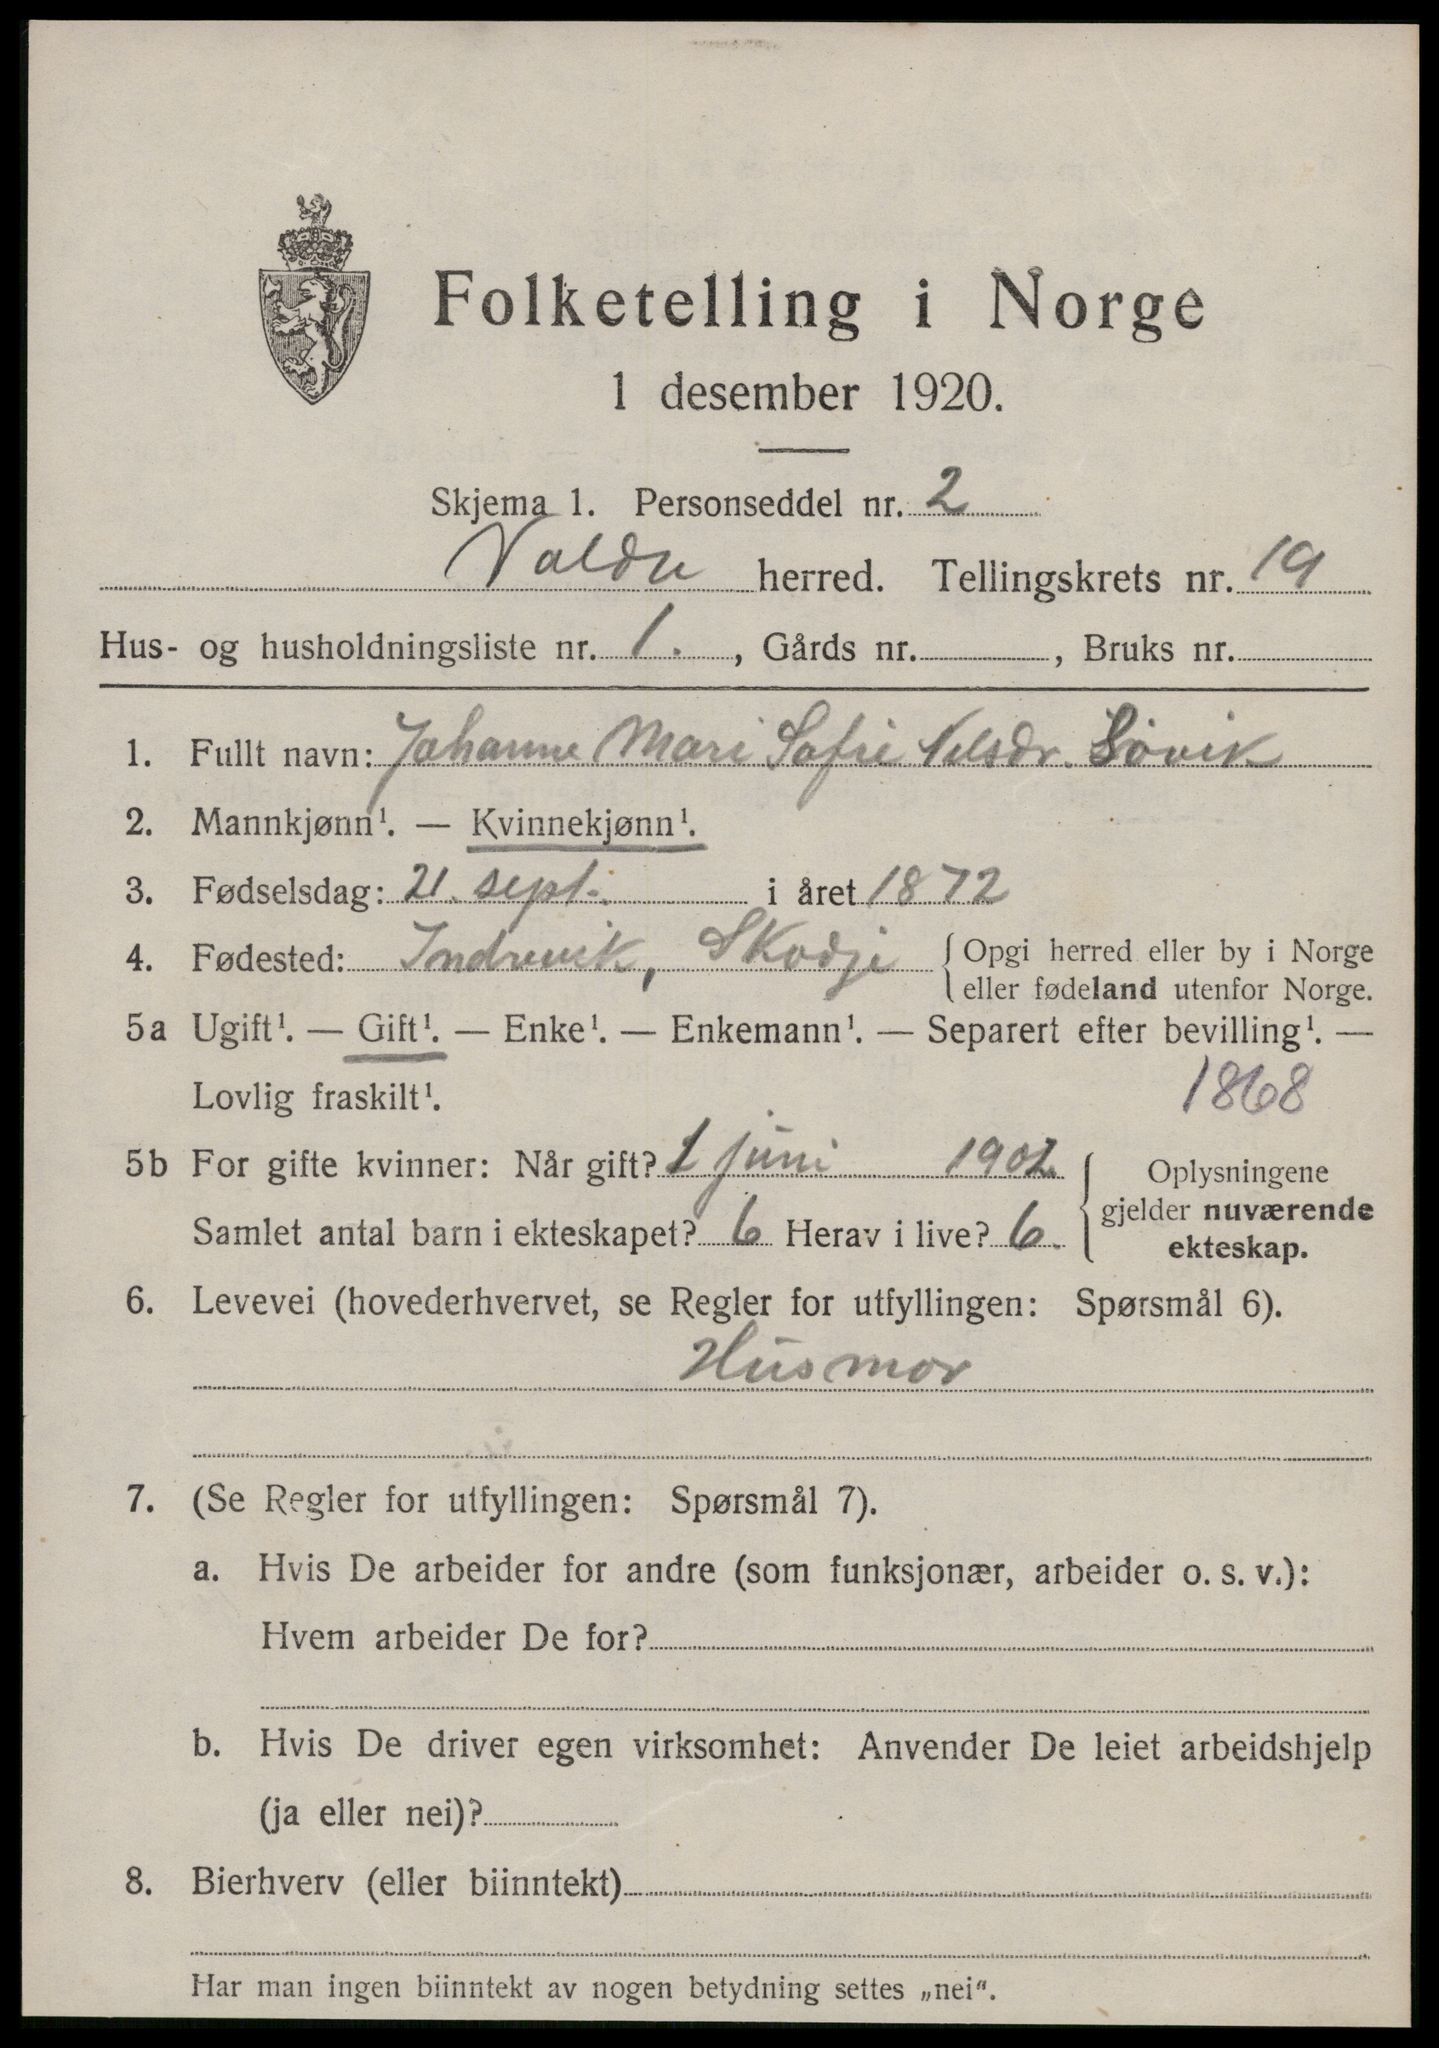 Folketelling i Norge
1 desember 1920.
Skjema 1. Personseddel nr. 2
Valdn herred. Tellingskrets nr. 19
Hus- og husholdningsliste nr. 1. , Gårds nr. , Bruks nr.
1. Fullt navn: Johanne Mari Sofie Nilsdr. Søvik
2. Mannkjønn¹. — Kvinnekjønn¹.
3. Fødselsdag: 21. sept. i året 1872
4. Fødested: Indrevik, Skodje { Opgi herred eller by i Norge
eller fødeland utenfor Norge.
5a Ugift¹. — Gift¹. — Enke¹. — Enkemann¹. — Separert efter bevilling¹. —
Lovlig fraskilt¹. 1868
5b For gifte kvinner: Når gift? 1 juni 1902. { Oplysningene
gjelder nuværende
Samlet antal barn i ekteskapet? 6 Herav i live? 6.
ekteskap.
6. Levevei (hovederhvervet, se Regler for utfyllingen: Spørsmål 6).
Husmor
7. (Se Regler for utfyllingen: Spørsmål 7).
a. Hvis De arbeider for andre (som funksjonær, arbeider o. s. v.):
Hvem arbeider De for?
b. Hvis De driver egen virksomhet: Anvender De leiet arbeidshjelp
(ja eller nei)?
8. Bierhverv (eller biinntekt)
Har man ingen biinntekt av nogen betydning settes „nei“.